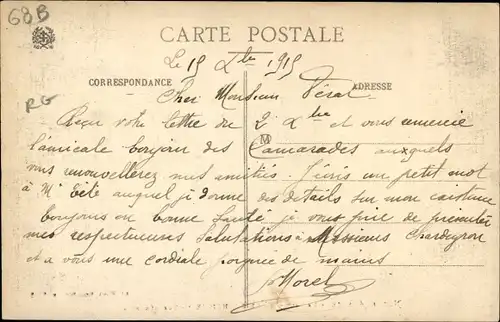 68B
CARTE POSTALE
Le 15 Xbre 1915
CORRESPONDANCE
ADRESSE
RG
Cher Monsieur
Reçu votre lettre du 2 Xbre et vous remercie
l'amicale bonjour des Camarades auxquels
M
vous renouvellerez mes amitiés J'écris un petit mot
à Mr auquel je donne des détails sur mon existence
toujours en bonne santé je vous prie de presenter
mes respectueuses salutations à Messieurs Chardeyron
et a vous une cordiale poignee de mains
Morel